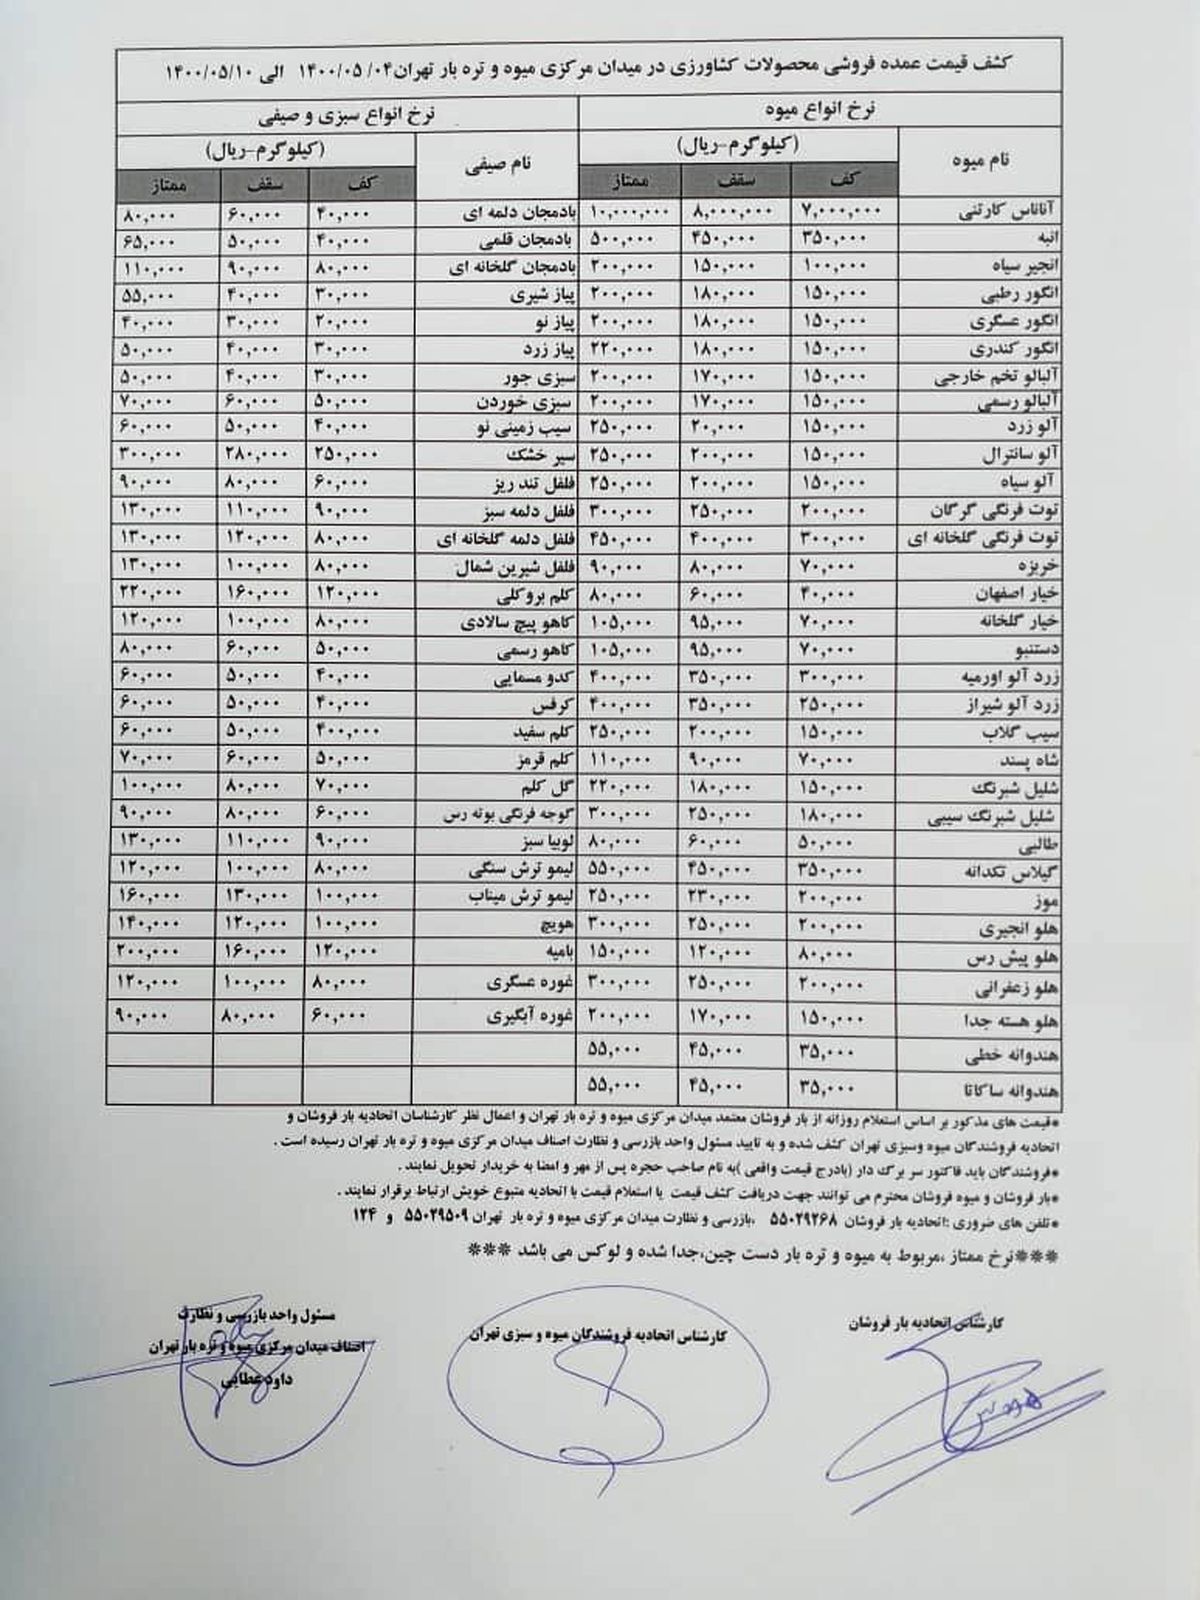 کشف قیمت عمده فروشی محصولات کشاورزی در میدان مرکزی میوه و تره بار تهران۰۴/ ۱۴۰۰/۰۵ الی ۱۴۰۰/۰۵/۱۰
نرخ انواع میوه نرخ انواع سبزی و صیفی
نام میوه (کیلوگرم-ریال) نام صیفی (کیلوگرم-ریال)
کف سقف ممتاز کف سقف ممتاز
آناناس کارتنی ۷,۰۰۰,۰۰۰ ۸,۰۰۰,۰۰۰ ۱۰,۰۰۰,۰۰۰ بادمجان دلمه ای ۴۰,۰۰۰ ۶۰,۰۰۰ ۸۰,۰۰۰
انبه ۳۵۰,۰۰۰ ۴۵۰,۰۰۰ ۵۰۰,۰۰۰ بادمجان قلمی ۴۰,۰۰۰ ۵۰,۰۰۰ ۶۵,۰۰۰
انجیر سیاه ۱۰۰,۰۰۰ ۱۵۰,۰۰۰ ۲۰۰,۰۰۰ بادمجان گلخانه ای ۸۰,۰۰۰ ۹۰,۰۰۰ ۱۱۰,۰۰۰
انگور رطبی ۱۵۰,۰۰۰ ۱۸۰,۰۰۰ ۲۰۰,۰۰۰ پیاز شیری ۳۰,۰۰۰ ۴۰,۰۰۰ ۵۵,۰۰۰
انگور عسگری ۱۵۰,۰۰۰ ۱۸۰,۰۰۰ ۲۰۰,۰۰۰ پیاز نو ۲۰,۰۰۰ ۳۰,۰۰۰ ۴۰,۰۰۰
انگور کندری ۱۵۰,۰۰۰ ۱۸۰,۰۰۰ ۲۲۰,۰۰۰ پیاز زرد ۳۰,۰۰۰ ۴۰,۰۰۰ ۵۰,۰۰۰
آلبالو تخم خارجی ۱۵۰,۰۰۰ ۱۷۰,۰۰۰ ۲۰۰,۰۰۰ سبزی جور ۳۰,۰۰۰ ۴۰,۰۰۰ ۵۰,۰۰۰
آلبالو رسمی ۱۵۰,۰۰۰ ۱۷۰,۰۰۰ ۲۰۰,۰۰۰ سبزی خوردن ۵۰,۰۰۰ ۶۰,۰۰۰ ۷۰,۰۰۰
آلو زرد ۱۵۰,۰۰۰ ۲۰,۰۰۰ ۲۵۰,۰۰۰ سیب زمینی نو ۴۰,۰۰۰ ۵۰,۰۰۰ ۶۰,۰۰۰
آلو سانترال ۱۵۰,۰۰۰ ۲۰۰,۰۰۰ ۲۵۰,۰۰۰ سیر خشک ۲۵۰,۰۰۰ ۲۸۰,۰۰۰ ۳۰۰,۰۰۰
آلو سیاه ۱۵۰,۰۰۰ ۲۰۰,۰۰۰ ۲۵۰,۰۰۰ فلفل تند ریز ۶۰,۰۰۰ ۸۰,۰۰۰ ۹۰,۰۰۰
توت فرنگی گرگان ۲۰۰,۰۰۰ ۲۵۰,۰۰۰ ۳۰۰,۰۰۰ فلفل دلمه سبز ۹۰,۰۰۰ ۱۱۰,۰۰۰ ۱۳۰,۰۰۰
توت فرنگی گلخانه ای ۳۰۰,۰۰۰ ۴۰۰,۰۰۰ ۴۵۰,۰۰۰ فلفل دلمه گلخانه ای ۸۰,۰۰۰ ۱۲۰,۰۰۰ ۱۳۰,۰۰۰
خربزه ۷۰,۰۰۰ ۸۰,۰۰۰ ۹۰,۰۰۰ فلفل شیرین شمال ۸۰,۰۰۰ ۱۰۰,۰۰۰ ۱۳۰,۰۰۰
خیار اصفهان ۴۰,۰۰۰ ۶۰,۰۰۰ ۸۰,۰۰۰ کلم بروکلی ۱۲۰,۰۰۰ ۱۶۰,۰۰۰ ۲۲۰,۰۰۰
خیار گلخانه ۷۰,۰۰۰ ۹۵,۰۰۰ ۱۰۵,۰۰۰ کاهو پیچ سالادی ۸۰,۰۰۰ ۱۰۰,۰۰۰ ۱۲۰,۰۰۰
دستنبو ۷۰,۰۰۰ ۹۵,۰۰۰ ۱۰۵,۰۰۰ کاهو رسمی ۵۰,۰۰۰ ۶۰,۰۰۰ ۸۰,۰۰۰
زرد آلو اورمیه ۳۰۰,۰۰۰ ۳۵۰,۰۰۰ ۴۰۰,۰۰۰ کدو مسمایی ۴۰,۰۰۰ ۵۰,۰۰۰ ۶۰,۰۰۰
زرد آلو شیراز ۲۵۰,۰۰۰ ۳۵۰,۰۰۰ ۴۰۰,۰۰۰ کرفس ۴۰,۰۰۰ ۵۰,۰۰۰ ۶۰,۰۰۰
سیب گلاب ۱۵۰,۰۰۰ ۲۰۰,۰۰۰ ۲۵۰,۰۰۰ کلم سفید ۴۰۰,۰۰۰ ۵۰,۰۰۰ ۶۰,۰۰۰
شاه پسند ۷۰,۰۰۰ ۹۰,۰۰۰ ۱۱۰,۰۰۰ کلم قرمز ۵۰,۰۰۰ ۶۰,۰۰۰ ۷۰,۰۰۰
شلیل شبرنگ ۱۵۰,۰۰۰ ۱۸۰,۰۰۰ ۲۲۰,۰۰۰ گل کلم ۷۰,۰۰۰ ۸۰,۰۰۰ ۱۰۰,۰۰۰
شلیل شبرنگ سیبی ۱۸۰,۰۰۰ ۲۵۰,۰۰۰ ۳۰۰,۰۰۰ گوجه فرنگی بوته رس ۶۰,۰۰۰ ۸۰,۰۰۰ ۹۰,۰۰۰
طالبی ۵۰,۰۰۰ ۶۰,۰۰۰ ۸۰,۰۰۰ لوبیا سبز ۹۰,۰۰۰ ۱۱۰,۰۰۰ ۱۳۰,۰۰۰
گیلاس تکدانه ۳۵۰,۰۰۰ ۴۵۰,۰۰۰ ۵۵۰,۰۰۰ لیمو ترش سنگی ۸۰,۰۰۰ ۱۰۰,۰۰۰ ۱۲۰,۰۰۰
موز ۲۰۰,۰۰۰ ۲۳۰,۰۰۰ ۲۵۰,۰۰۰ لیمو ترش میناب ۱۰۰,۰۰۰ ۱۳۰,۰۰۰ ۱۶۰,۰۰۰
هلو انجیری ۲۰۰,۰۰۰ ۲۵۰,۰۰۰ ۳۰۰,۰۰۰ هویچ ۱۰۰,۰۰۰ ۱۲۰,۰۰۰ ۱۴۰,۰۰۰
هلو پیش رس ۸۰,۰۰۰ ۱۲۰,۰۰۰ ۱۵۰,۰۰۰ بامیه ۱۲۰,۰۰۰ ۱۶۰,۰۰۰ ۲۰۰,۰۰۰
هلو زعفرانی ۲۰۰,۰۰۰ ۲۵۰,۰۰۰ ۳۰۰,۰۰۰ غوره عسگری ۸۰,۰۰۰ ۱۰۰,۰۰۰ ۱۲۰,۰۰۰
هلو هسته جدا ۱۵۰,۰۰۰ ۱۷۰,۰۰۰ ۲۰۰,۰۰۰ غوره آبگیری ۶۰,۰۰۰ ۸۰,۰۰۰ ۹۰,۰۰۰
هندوانه خطی ۳۵,۰۰۰ ۴۵,۰۰۰ ۵۵,۰۰۰
هندوانه ساکاتا ۳۵,۰۰۰ ۴۵,۰۰۰ ۵۵,۰۰۰
*قیمت های مذکور بر اساس استعلام روزانه از بار فروشان معتمد میدان مرکزی میوه و تره بار تهران و اعمال نظر کارشناسان اتحادیه بار فروشان و
اتحادیه فروشندگان میوه وسبزی تهران کشف شده و به تایید مسئول واحد بازرسی و نظارت اصناف میدان مرکزی میوه و تره بار تهران رسیده است .
*فروشندگان باید فاکتور سر برگ دار (بادرج قیمت واقعی )به نام صاحب حجره پس از مهر و امضا به خریدار تحویل نمایند .
*بار فروشان و میوه فروشان محترم می توانند جهت دریافت کشف قیمت یا استعلام قیمت با اتحادیه متبوع خویش ارتباط برقرار نمایند .
*تلفن های ضروری :اتحادیه بار فروشان ۵۵۰۲۹۲۶۸ ،بازرسی و نظارت میدان مرکزی میوه و تره بار تهران ۵۵۰۲۹۵۰۹ و ۱۲۴
***نرخ ممتاز ،مربوط به میوه و تره بار دست چین،جدا شده و لوکس می باشد ***
کارشناس اتحادیه بار فروشان
کارشناس اتحادیه فروشندگان میوه و سبزی تهران
مسئول واحد بازرسی و نظارت
اصناف میدان مرکزی میوه و تره بار تهران
داود عطایی